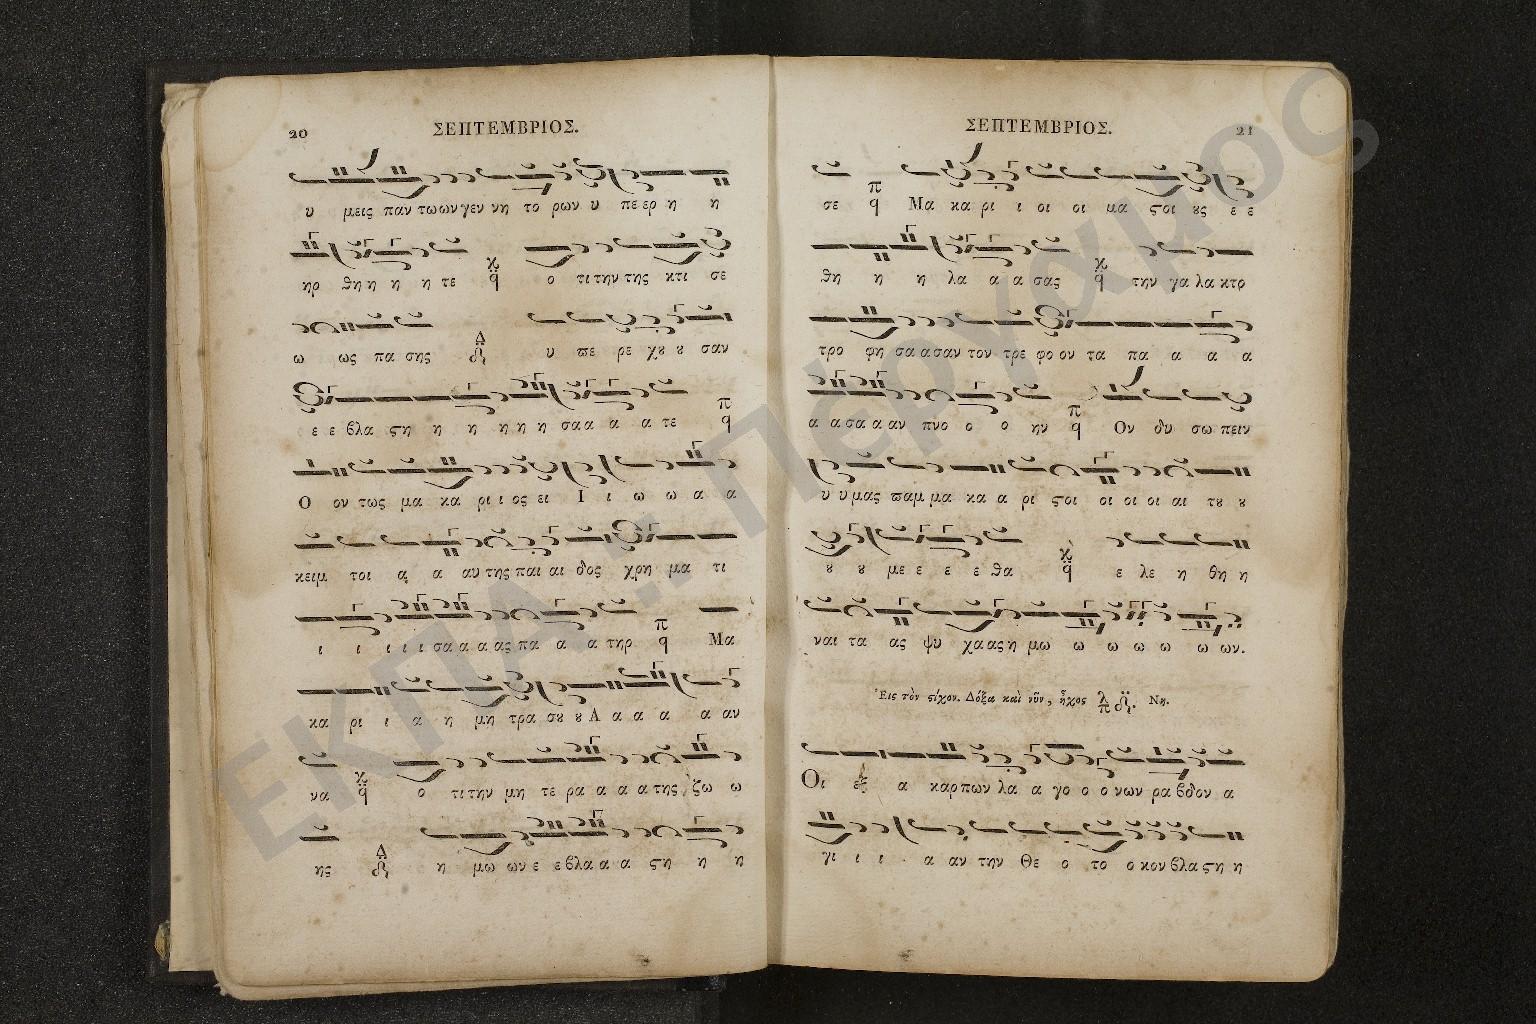 20
ΣΕΠΤΕΜΒΡΙΟΣ.
υ μεις παν τω ων γεν νη το ρων υ πε ερ η η
ηρ θη η η η τε κ q ο τι την της κτι σε
ω ως πα σης Δ υ πε ρε χȣ ȣ σαν
ε ε βλα ϛη η η η η η σα α α α τε π q
Ο ον τως μα κα ρι ι ος ει Ι ι ω ω α α
κειμ τοι α α αυ της παι αι δος χρη μα τι
ι ι ι ι ι σα α α ας πα α α τηρ π q Μα
κα ρι ι α η μη τρα σȣ ȣ Α α α α α αν
να κ q ο τι την μη τε ρα α α α της ζω ω
ης Δ η μω ων ε ε βλα α α ϛη η η
ΣΕΠΤΕΜΒΡΙΟΣ.
21
σε π q Μα κα ρι ι οι οι μα ϛοι ȣς ε ε
θη η η λα α α σας κ q την γα λα κτο
τρο φη σα α σαν τον τρε φο ον τα πα α α α
α α σα α αν πνο ο ο ην π q Ον δυ σω πειν
υ υ μας παμ μα κα α ρι ϛοι οι οι οι αι τȣ ȣ
ȣ ȣ με ε ε ε θα κ q ε λε η θη η
ναι τα ας ψυ χα ας η μω ω ω ω ω ω ων.
Ἐις τὸν ϛίχον. Δόξα καὶ νῦν, ἦχος λ π . Νη.
Οι εξ α καρ πων λα α γο ο ο νων ρα βδον α
γι ι ι α αν την Θε ο το ο κον βλα ϛη η
ΕΚΠΑ .:. Πέργαμος